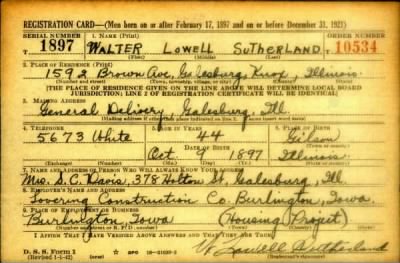 REGISTRATION CARD—(Men born on or after February 17, 1897 and on or before December 31, 1921)
SERIAL NUMBER 1. NAME (Print) ORDER NUMBER
1897 WALTER LOWELL SUTHERLAND T 10534
2. PLACE OF RESIDENCE (Print)
1592 Brown Ave, Galesburg, Knox, Illinois
(Number and street) (Town, township, village, or city) (County) (State)
[THE PLACE OF RESIDENCE GIVEN ON THE LINE ABOVE WILL DETERMINE LOCAL BOARD
JURISDICTION; LINE 2 OF REGISTRATION CERTIFICATE WILL BE IDENTICAL]
3. MAILING ADDRESS
General Delivery Galesburg, Ill.
4. TELEPHONE 5. AGE IN YEARS 6. PLACE OF BIRTH
5673 White 44 Gilson
DATE OF BIRTH
Oct 9 1897 Illinois
7. NAME AND ADDRESS OF PERSON WHO WILL ALWAYS KNOW YOUR ADDRESS
Mrs. D. C. Davis, 378 Holton St, Galesburg, Ill
8. EMPLOYER'S NAME AND ADDRESS
Lovering Construction Co. Burlington, Iowa.
9. PLACE OF EMPLOYMENT OR BUSINESS
Burlington, Iowa (Housing Project)
I AFFIRM THAT I HAVE VERIFIED ABOVE ANSWERS AND THAT THEY ARE TRUE.
D. S. S. Form 1
(Revised 1-1-42) (over)
W. Lowell Sutherland